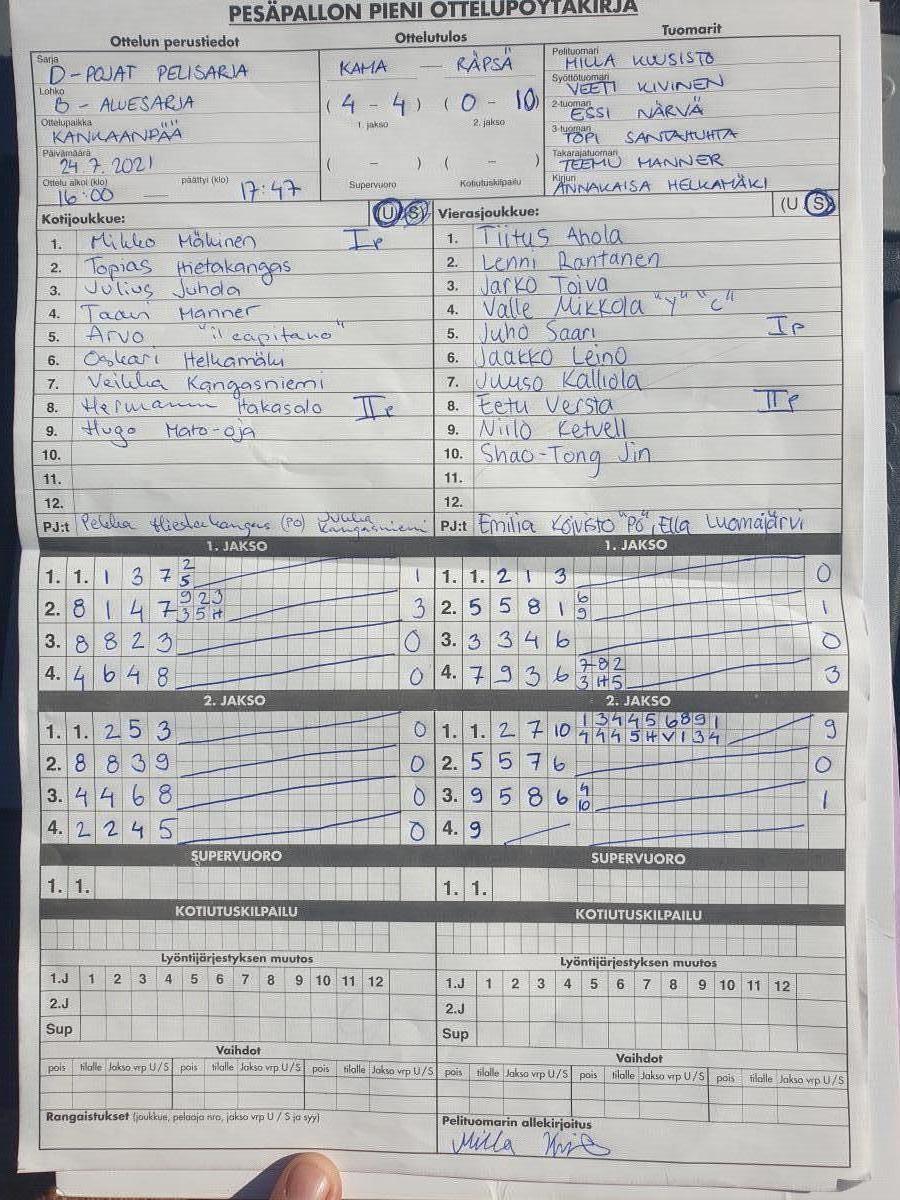 PESÄPALLON PIENI OTTELUPÖYTÄKIRJA
Ottelun perustiedot
Sarja
D-POJAT PELISARJA
Lohko
B - ALUESARJA
Ottelupaikka
KANKAANPÄÄ
Päivämäärä
24.7.2021
Ottelu alkoi (klo) päättyi (klo)
16:00 — 17:47
Ottelutulos
KAMA — RÄPSÄ
(4 - 4) (0 - 10)
1. jakso 2. jakso
( - ) ( - )
Supervuoro Kotiutuskilpailu
Tuomarit
Pelituomari
MILLA KUUSISTO
Syöttötuomari
VEETI KIVINEN
2-tuomari
ESSI NÄRVÄ
3-tuomari
TOPI SANTAHUHTA
Takarajatuomari
TEEMU MANNER
Kirjuri
ANNAKAISA HELKAMÄKI
Kotijoukkue: (U S)
1. Mikko Mäkinen Ip
2. Topias Hietakangas
3. Julius Juhola
4. Taavi Manner
5. Arvo "il capitano"
6. Oskari Helkamäki
7. Veikka Kangasniemi
8. Hermanni Hakasalo IIp
9. Hugo Mato-oja
10.
11.
12.
PJ:t Pekka Hietakangas (PO) Jukka Kangasniemi
Vierasjoukkue: (U S)
1. Tiitus Ahola
2. Lenni Rantanen
3. Jarko Toiva
4. Valle Mikkola "Y" "C"
5. Juho Saari Ip
6. Jaakko Leino
7. Juuso Kalliola
8. Eetu Versta IIp
9. Niilo Ketvell
10. Shao-Tong Jin
11.
12.
PJ:t Emilia Koivisto "PO", Ella Luomajärvi
1. JAKSO
1. 1. 1 3 7 2 1
5
2. 8 1 4 7 9 2 3 3
3 5 H
3. 8 8 2 3 0
4. 4 6 4 8 0
2. JAKSO
1. 1. 2 5 3 0
2. 8 8 3 9 0
3. 4 4 6 8 0
4. 2 2 4 5 0
SUPERVUORO
1. 1.
KOTIUTUSKILPAILU
Lyöntijärjestyksen muutos
1.J 1 2 3 4 5 6 7 8 9 10 11 12
2.J
Sup
Vaihdot
pois tilalle Jakso vrp U/S pois tilalle Jakso vrp U/S pois tilalle Jakso vrp U/S
Rangaistukset (joukkue, pelaaja nro, jakso vrp U / S ja syy)
1. JAKSO
1. 1. 2 1 3 0
2. 5 5 8 1 6 1
9
3. 3 3 4 6 0
4. 7 9 3 6 7 8 2 3
3 H 5
2. JAKSO
1. 1. 2 7 10 1 3 4 4 5 6 8 9 1 9
4 4 4 5 H V 1 3 4
2. 5 5 7 6 0
3. 9 5 8 6 4 1
10
4. 9
SUPERVUORO
1. 1.
KOTIUTUSKILPAILU
Lyöntijärjestyksen muutos
1.J 1 2 3 4 5 6 7 8 9 10 11 12
2.J
Sup
Vaihdot
pois tilalle Jakso vrp U/S pois tilalle Jakso vrp U/S pois tilalle Jakso vrp U/S
Pelituomarin allekirjoitus
Milla